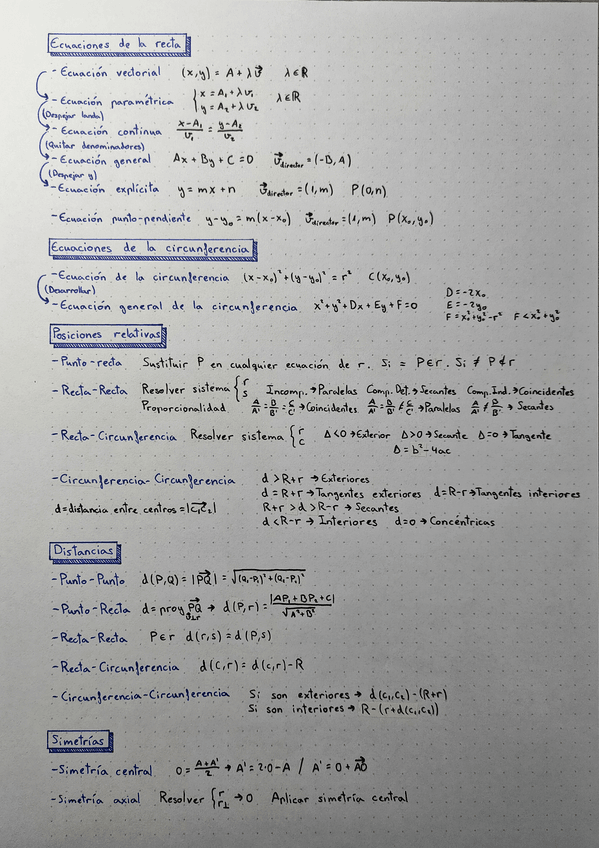 Ecuaciones de la recta
- Ecuación vectorial (x,y) = A + λv⃗ λ∈ℝ
- Ecuación paramétrica { x = A₁ + λv₁ y = A₂ + λv₂ λ∈ℝ
(Despejar landa)
- Ecuación continua (x-A₁)/v₁ = (y-A₂)/v₂
(Quitar denominadores)
- Ecuación general Ax + By + C = 0 v⃗director = (-B, A)
(Despejar y)
- Ecuación explícita y = mx + n v⃗director = (1, m) P(0, n)
- Ecuación punto-pendiente y - y₀ = m(x - x₀) v⃗director = (1, m) P(x₀, y₀)
Ecuaciones de la circunferencia
- Ecuación de la circunferencia (x-x₀)² + (y-y₀)² = r² C(x₀, y₀)
(Desarrollar)
- Ecuación general de la circunferencia x² + y² + Dx + Ey + F = 0
D = -2x₀
E = -2y₀
F = x₀² + y₀² - r² F < x₀² + y₀²
Posiciones relativas
- Punto-recta Sustituir P en cualquier ecuación de r. Si = P∈r. Si ≠ P∉r
- Recta-Recta Resolver sistema { r s Incomp. → Paralelas Comp. Det. → Secantes Comp. Ind. → Coincidentes
Proporcionalidad A/A' = B/B' = C/C' → Coincidentes A/A' = B/B' ≠ C/C' → Paralelas A/A' ≠ B/B' → Secantes
- Recta-Circunferencia Resolver sistema { r c Δ<0 → Exterior Δ>0 → Secante Δ=0 → Tangente
Δ = b² - 4ac
- Circunferencia-Circunferencia d > R+r → Exteriores
d = R+r → Tangentes exteriores d = R-r → Tangentes interiores
d = distancia entre centros = |C₁C₂| R+r > d > R-r → Secantes
d < R-r → Interiores d=0 → Concéntricas
Distancias
- Punto-Punto d(P,Q) = |PQ| = √((Q₁-P₁)² + (Q₂-P₂)²)
- Punto-Recta d = proy PQ v⊥r → d(P,r) = |AP₁ + BP₂ + C| / √(A² + B²)
- Recta-Recta P∈r d(r,s) = d(P,s)
- Recta-Circunferencia d(C,r) = d(c,r) - R
- Circunferencia-Circunferencia Si son exteriores → d(c₁,c₂) - (R+r)
Si son interiores → R - (r + d(c₁,c₂))
Simetrías
- Simetría central O = (A+A')/2 → A' = 2·O - A / A' = O + AO
- Simetría axial Resolver { r r⊥ → O Aplicar simetría central